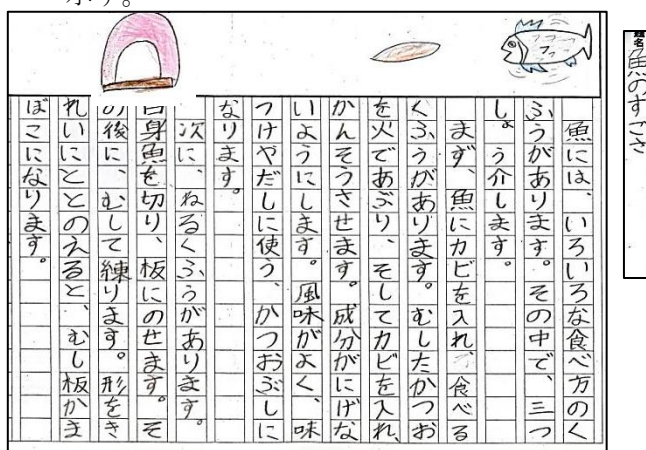 題名
魚のすごさ
魚には、いろいろな食べ方のく
ふうがあります。その中で、三つ
しょう介します。
まず、魚にカビを入れ、食べる
くふうがあります。むしたかつお
を火であぶり、そしてカビを入れ、
かんそうさせます。成分がにげな
いようにします。風味がよく、味
つけやだしに使う、かつおぶしに
なります。
次に、ねるくふうがあります。
白身魚を切り、板にのせます。そ
の後に、むして練ります。形をき
れいにととのえると、むし板かま
ぼこになります。